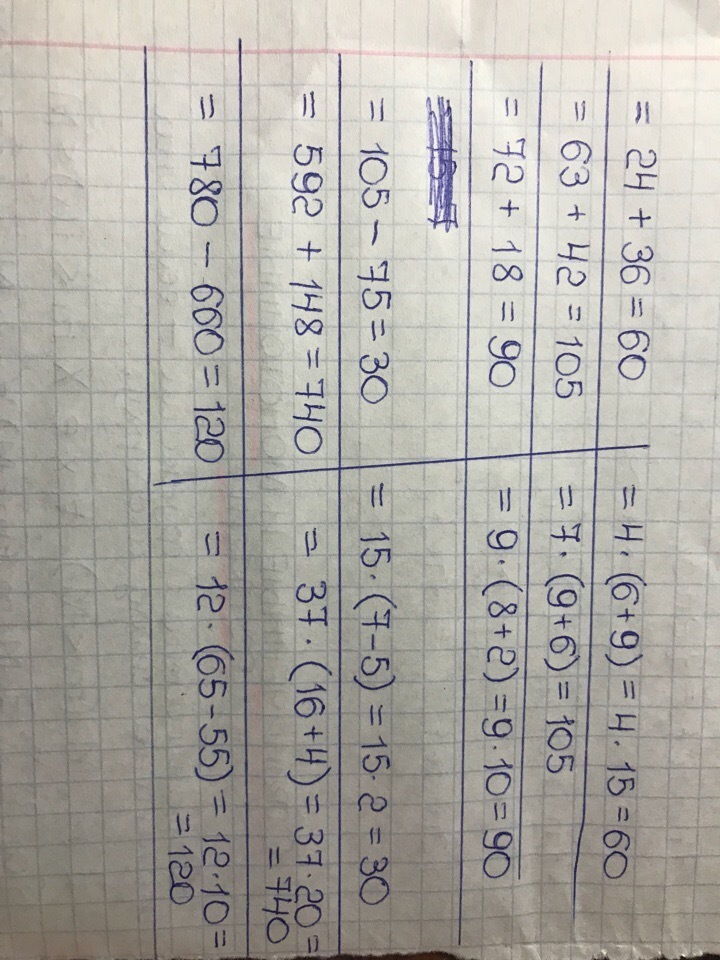 = 24 + 36 = 60
= 4 · (6+9) = 4 · 15 = 60
= 63 + 42 = 105
= 7 · (9+6) = 105
= 72 + 18 = 90
= 9 · (8+2) = 9 · 10 = 90
= 105 - 75 = 30
= 15 · (7-5) = 15 · 2 = 30
= 592 + 148 = 740
= 37 · (16+4) = 37 · 20 =
= 740
= 780 - 600 = 120
= 12 · (65-55) = 12 · 10 =
= 120